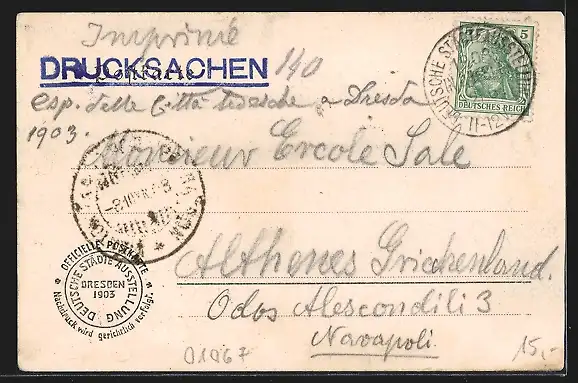 Imprimé
DRUCKSACHEN 140
esp. delle Città Tedesche a Dresda
1903.
DEUTSCHE STÄDTEAUSSTELLUNG
11-12
5
DEUTSCHES REICH
Monsieur Ercole Sale
OFFICIELLE POSTKARTE
DEUTSCHE STÄDTEAUSSTELLUNG
DRESDEN
1903
Nachdruck wird gerichtlich verfolgt.
Athènes Griechenland.
Odos Alescondili 3
Navapoli
01967
15,-